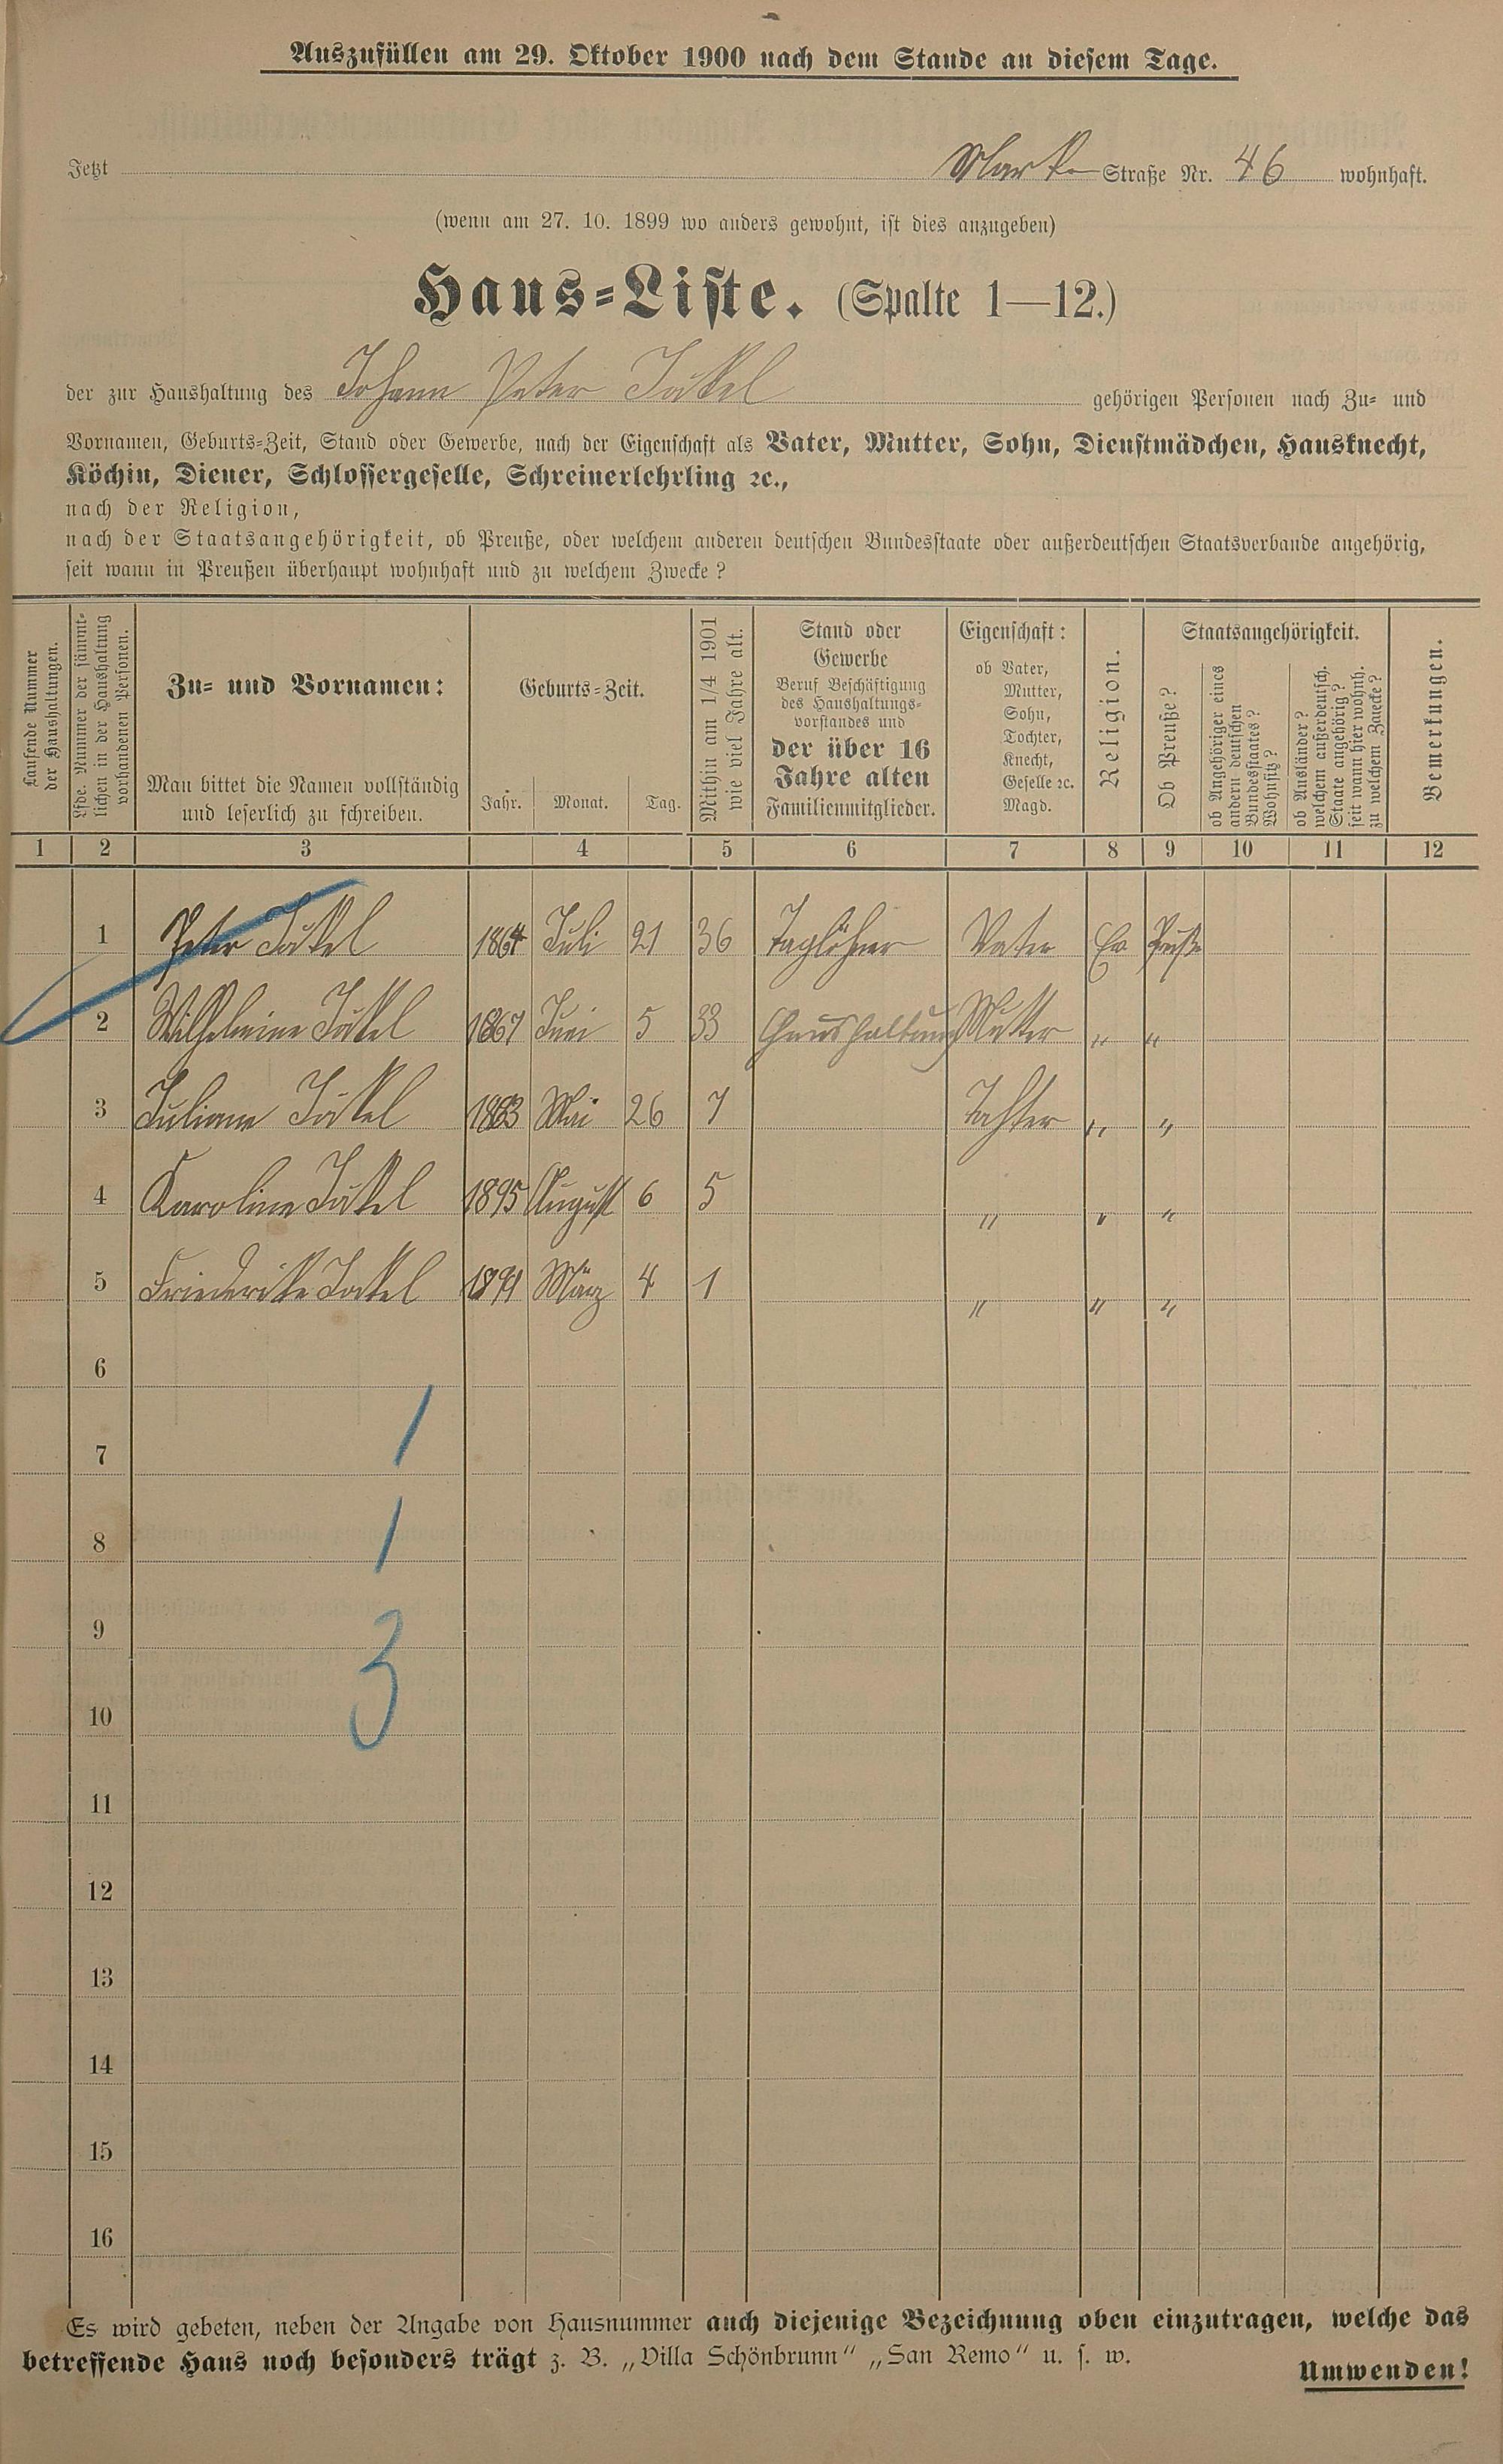 Auszufüllen am 29. Oktober 1900 nach dem Stande an diesem Tage.
Jetzt Straße Nr. 46 wohnhaft.
(wenn am 27. 10. 1899 wo anders gewohnt, ist dies anzugeben)
Haus-Liste. (Spalte 1—12.)
der zur Haushaltung des Johann Peter Jäkel gehörigen Personen nach Zu- und
Vornamen, Geburts-Zeit, Stand oder Gewerbe, nach der Eigenschaft als Vater, Mutter, Sohn, Dienstmädchen, Hausknecht,
Köchin, Diener, Schlossergeselle, Schreinerlehrling ꝛc.,
nach der Religion,
nach der Staatsangehörigkeit, ob Preuße, oder welchem anderen deutschen Bundesstaate oder außerdeutschen Staatsverbande angehörig,
seit wann in Preußen überhaupt wohnhaft und zu welchem Zwecke?
Laufende Nummer
der Haushaltungen.
Lfde. Nummer der sämmt-
lichen in der Haushaltung
vorhandenen Personen.
Zu- und Vornamen:
Man bittet die Namen vollständig
und leserlich zu schreiben.
Geburts-Zeit.
Jahr. Monat. Tag.
Mithin am 1/4 1901
wie viel Jahre alt.
Stand oder
Gewerbe
Beruf Beschäftigung
des Haushaltungs-
vorstandes und
der über 16
Jahre alten
Familienmitglieder.
Eigenschaft:
ob Vater,
Mutter,
Sohn,
Tochter,
Knecht,
Geselle ꝛc.
Magd.
Religion.
Staatsangehörigkeit.
Ob Preuße?
ob Angehöriger eines
andern deutschen
Bundesstaates?
Wohnsitz?
ob Ausländer?
welchem außerdeutsch.
Staate angehörig?
seit wann hier wohnh.
zu welchem Zwecke?
Bemerkungen.
1 2 3 4 5 6 7 8 9 10 11 12
1 Peter Jäkel 1864 Juli 21 36 Taglöhner Vater Ev Preuße
2 Wilhelmine Jäkel 1867 Juni 5 33 Haushaltung Mutter " "
3 Juliane Jäkel Mai 26 7 Tochter " "
4 Karoline Jäkel 1895 August 6 5 " " "
5 Friederike Jäkel März 4 1 " " "
6
7
8
9
10
11
12
13
14
15
16
1
1
3
Es wird gebeten, neben der Angabe von Hausnummer auch diejenige Bezeichnung oben einzutragen, welche das
betreffende Haus noch besonders trägt z. B. „Villa Schönbrunn" „San Remo" u. s. w.
Umwenden!